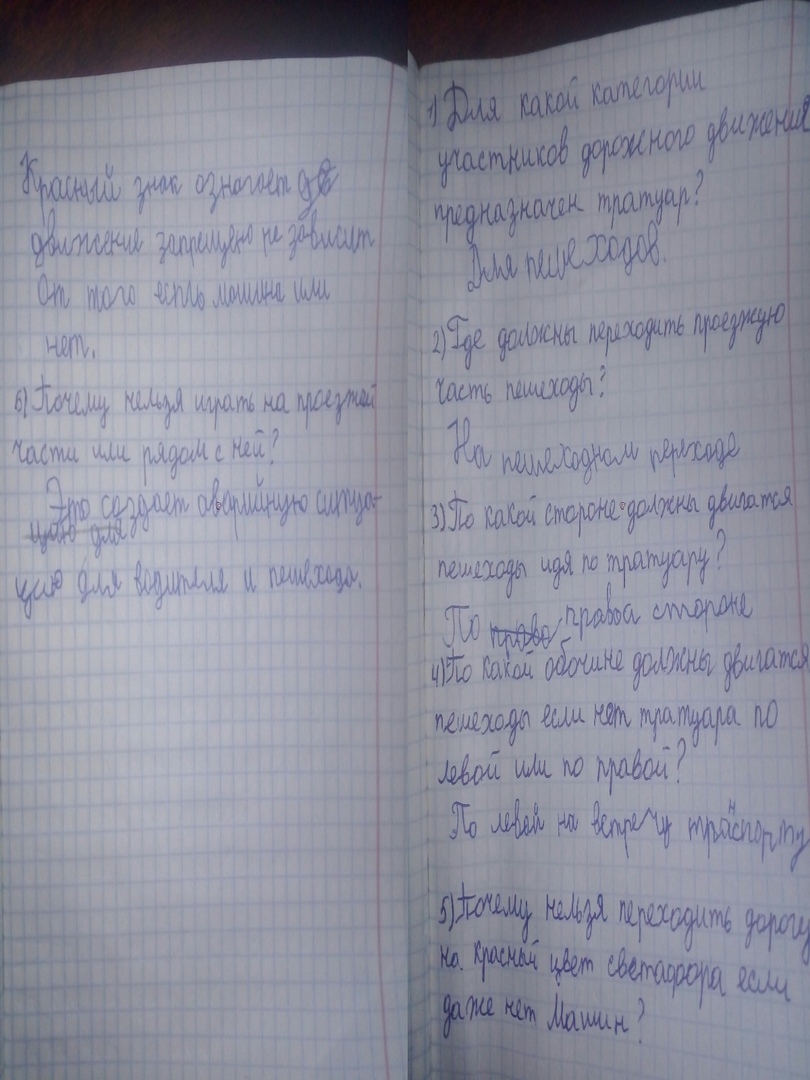 Красный знак означает
движение запрещено не зависит
От того есть машина или
нет.
6) Почему нельзя играть на проезжой
части или рядом с ней?
Это создает аварийную ситуа-
цию для
цию для водителя и пешехода.
1) Для какой категории
участников дорожного движения
предназначен тратуар?
Для пешеходов.
2) Где должны переходить проезжую
часть пешеходы?
На пешеходном переходе
3) По какой стороне должны двигатся
пешеходы идя по тратуару?
По право правой стороне
4) По какой обочине должны двигатся
пешеходы если нет тратуара по
левой или по правой?
По левой на встречу транспорту
5) Почему нельзя переходить дорогу
на красный цвет светафора если
даже нет Машин?